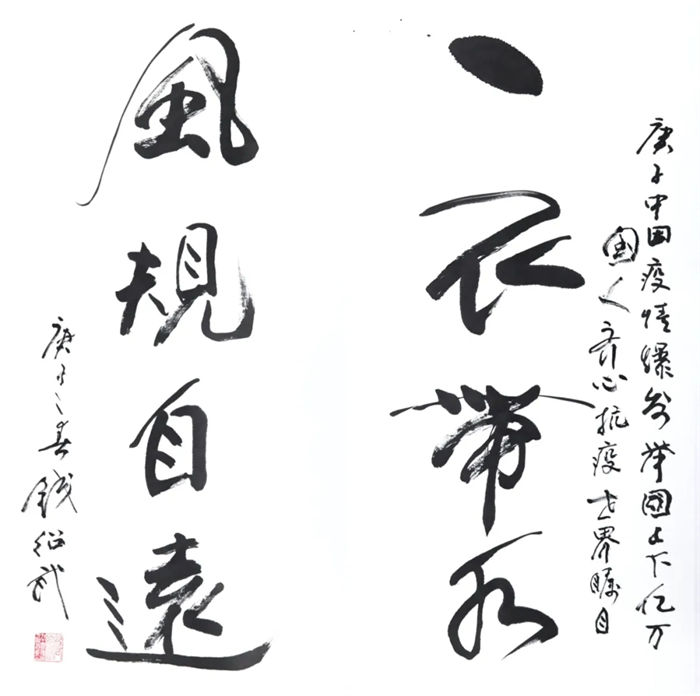 庚子中国疫情爆發举國上下亿万
国人齐心抗疫世界瞩目
一衣带水
風規自遠
庚子之春钱绍武